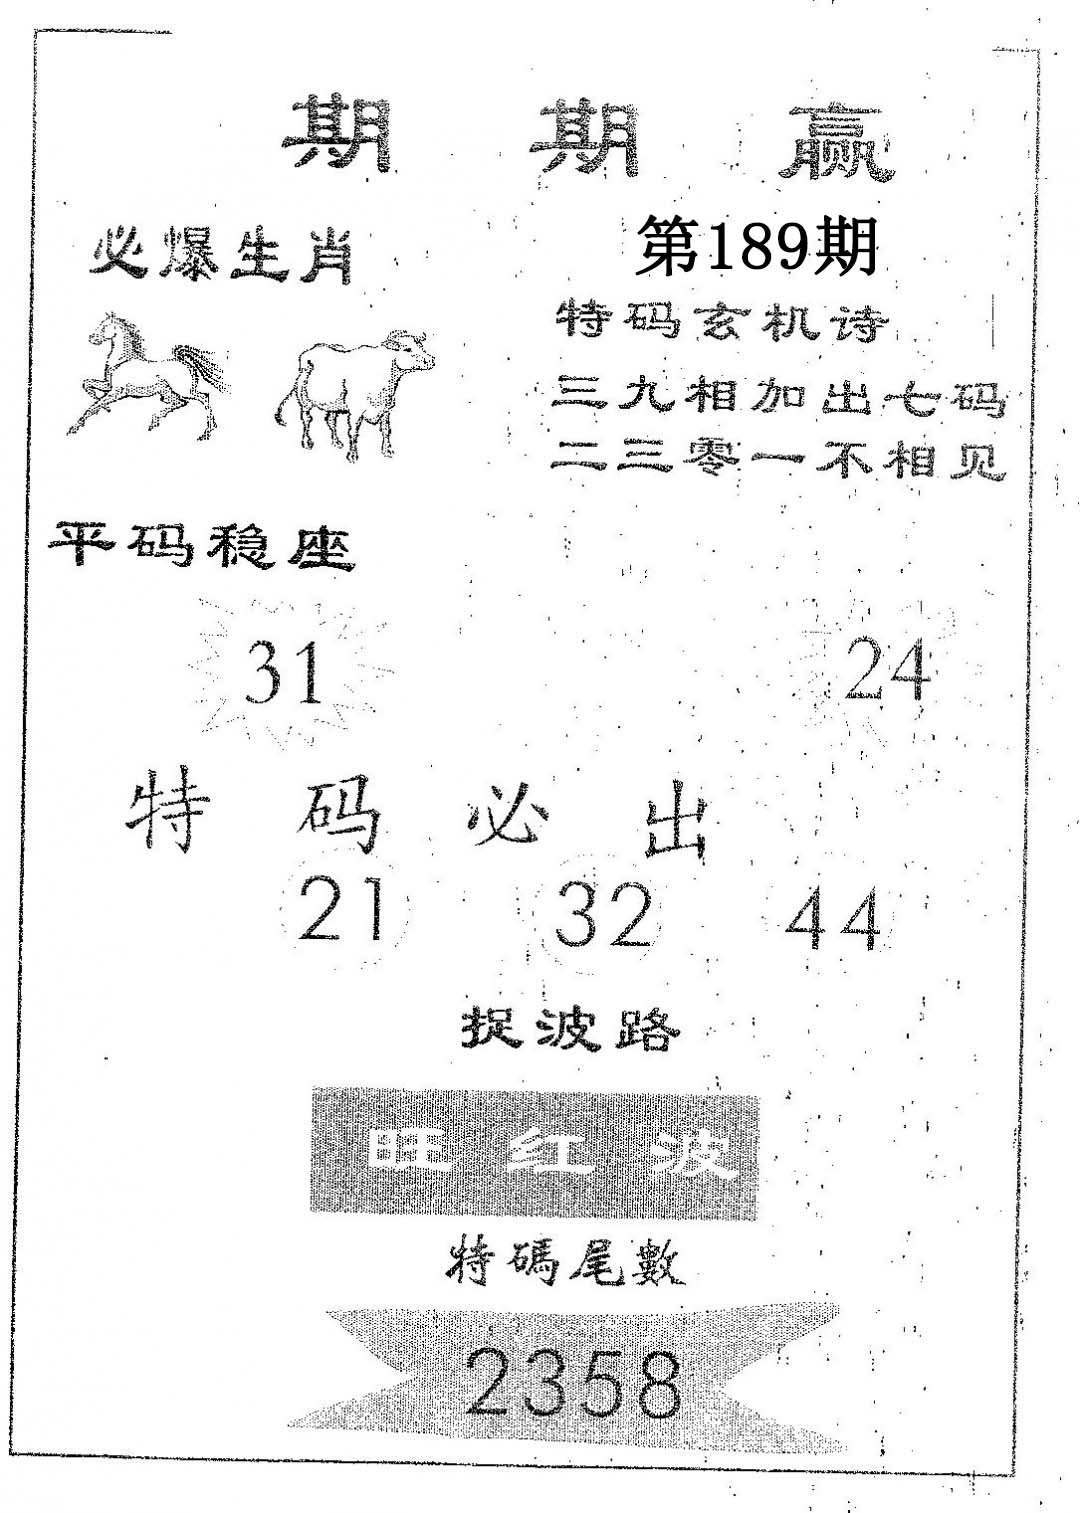 期期赢
必爆生肖
第189期
特码玄机诗
三九相加出七码
二三零一不相见
平码稳座
31 24
特码必出
21 32 44
捉波路
旺红波
特碼尾數
2358